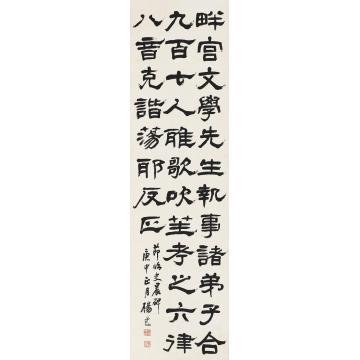 畔宫文學先生執事諸弟子合
九百七人雅歌吹笙考之六律
八音克諧蕩耶反正
節臨史晨碑
庚申正月楊